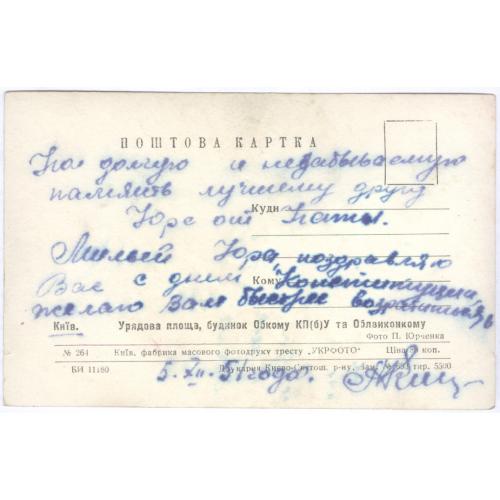 ПОШТОВА КАРТКА
На долгую и незабываемую
память лучшему другу
Куди
Юре от Наты.
Милый Юра поздравляю
Кому
Вас с днем "Конституции"
желаю Вам быстрее возратиться
Київ. Урядова площа, будинок Обкому КП(б)У та Облвиконкому
Фото П. Юрченка
№ 264 Київ, фабрика масового фотодруку тресту „УКРФОТО" Ціна коп.
БИ 11180 5. XII. 51 года. Друкарня Києво-Святош. р-ну, Зам. № тир. 5500